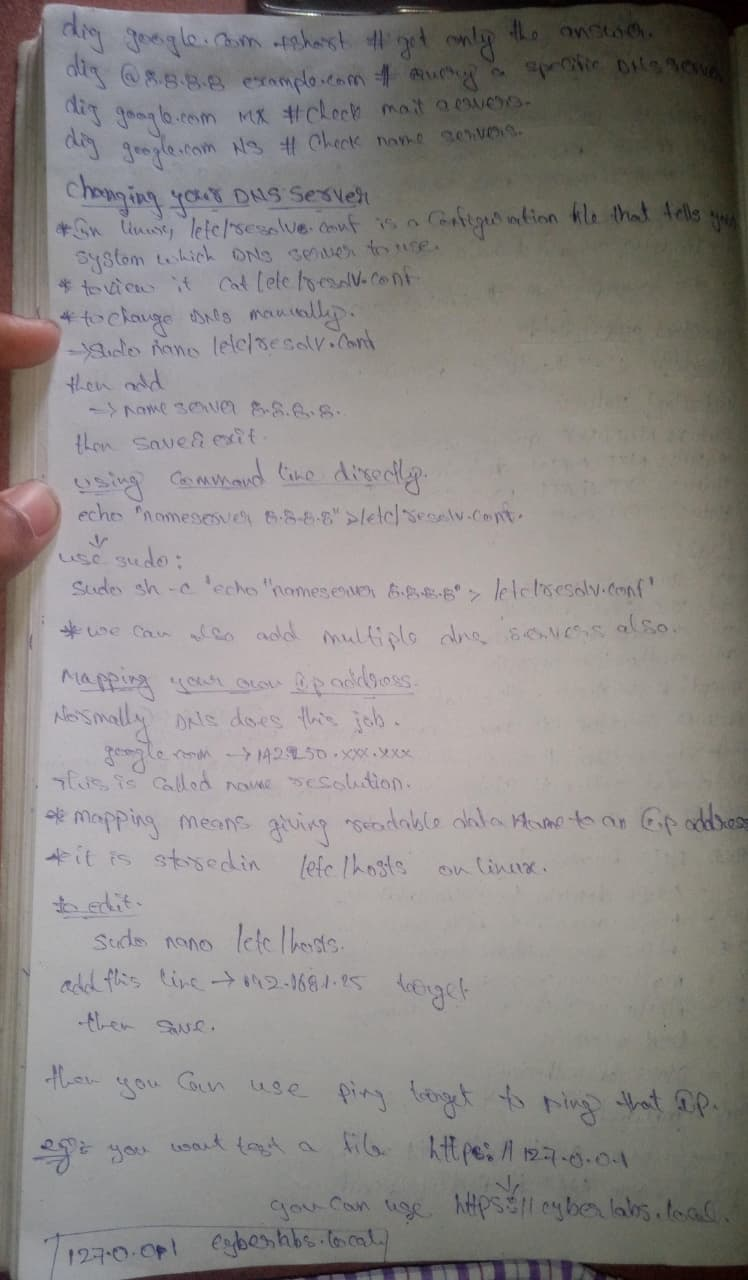 dig google.com +short # get only the answer.
dig @8.8.8.8 example.com # query a specific DNS server
dig google.com MX # check mail servers.
dig google.com NS # Check name servers.
Changing your DNS Server
* In linux, /etc/resolve.conf is a Configuration file that tells your
system which DNS server to use.
* to view it cat /etc/resolv.conf
* to change DNS manually.
→ sudo nano /etc/resolv.conf
then add
→ nameserver 8.8.8.8.
then save & exit.
using Command line directly.
echo "nameserver 8.8.8.8" > /etc/resolv.conf.
↓
use sudo:
sudo sh -c 'echo "nameserver 8.8.8.8" > /etc/resolv.conf'
* we can also add multiple dns servers also.
Mapping your own Ip address.
Normally DNS does this job.
google.com → 142.250.xxx.xxx
This is called name resolution.
* mapping means giving readable data Name to an Ip address
* it is stored in /etc/hosts on linux.
to edit.
sudo nano /etc/hosts.
add this line → 192.168.1.25 target
then save.
then you can use ping target to ping that IP.
eg:- you want test a file https://127.0.0.1
↓
you can use https://cyberlabs.local.
127.0.0.1 cyberlabs.local